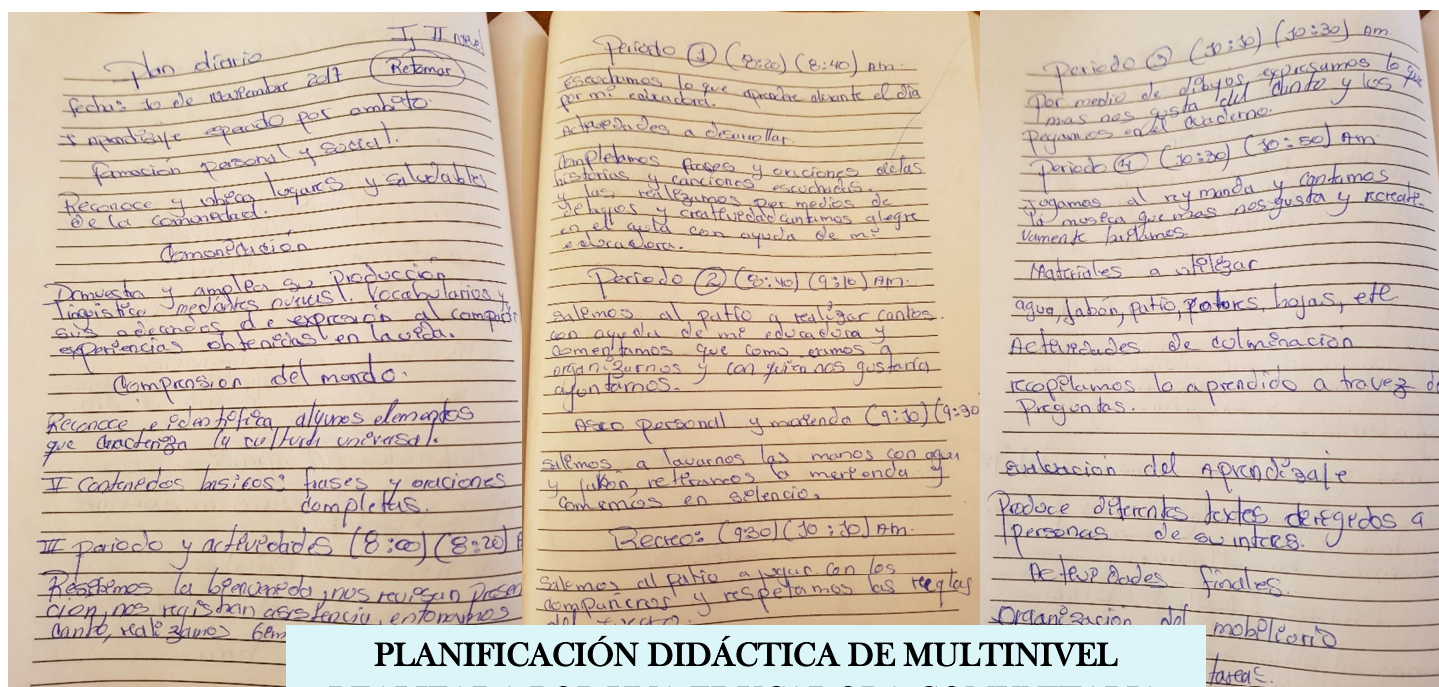 I, II nivel
plan diario
fecha: 10 de Noviembre 2017 (Retomar)
I Aprendizaje esperado por ambito.
formación personal y social.
Reconoce y ubica lugares y saludables
de la comonedad.
Comonecación
Demuestra y amplea su producción
lingüistica mediantes nuevas. Vocabularios y
sus adecuados de expresión al compartir
experiencias obtenedas en la veda.
Comprensión del mondo.
Reconoce e edentefeca algunos elementos
que caracteriza la cultura universal.
II Contenedos basicos: frases y oraciones
completas.
III periodo y actevedades (8:00) (8:20)
Resebemos la beenveneda, nos revisan presen
cion, nos registran asestencia, entonamos
canto, realizamos
Periodo ① (8:20) (8:40) Am.
Escuchamos lo que aprendere durante el día
por mi educadora.
Actevedades a desarrollar.
Completamos frases y oraciones de las
historias y canciones escuchadas.
y las realezamos por medios de
debujos y createvedad cantamos alegre
en el aula con ayuda de mi
educadora.
Periodo ② (8:40) (9:10) Am.
Salemos al patío a realezar cantos.
con ayuda de mi educadora y
comentamos que como eremos a
organizarnos y con quien nos gustaría
ajuntarnos.
Aseo personal y merienda (9:10) (9:30
salemos a lavarnos las manos con agua
y jabón, reteramos la merienda y
comemos en selencio.
Recreo: (9:30) (10:10) Am.
Salemos al patio a jugar con los
compañeros y respetamos las reglas
del
Periodo ③ (10:10) (10:30) Am.
Por medio de dibujos, expresamos lo que
mas nos gusta del canto y los
pegamos en el cuaderno.
Periodo ④ (10:30) (10:50) Am.
Jugamos al rey manda y cantamos
la museca que mas nos gusta y recreate-
vamente bailamos.
Materiales a utelezar
agua, jabón, patio, hojas, etc
Actevedades de culmenación
recopelamos lo aprendido a travez de
preguntas.
evaluación del Aprendezaje
Produce diferentes textos deregedos a
personas de su interes.
Actevedades finales.
Organezación del mobeleario
tareas.
PLANIFICACIÓN DIDÁCTICA DE MULTINIVEL